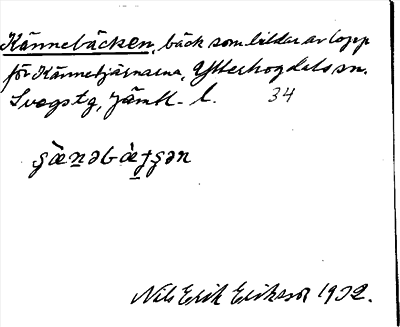 Kännebäcken, bäck som bildar avlopp
för Kännetjärnarna, Ytterhogdals sn.
Svegs tg, Jämtl. l. 34
Nils Erik Eriksson 1932.